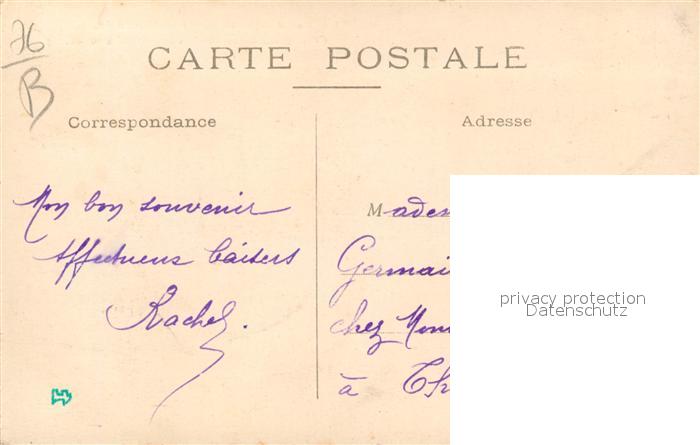 76
B
CARTE POSTALE
Correspondance
Adresse
Mon bon souvenir
Affectueux baisers
Rachel.
Madem
Germai
chez Mon
à Th
privacy protection
Datenschutz